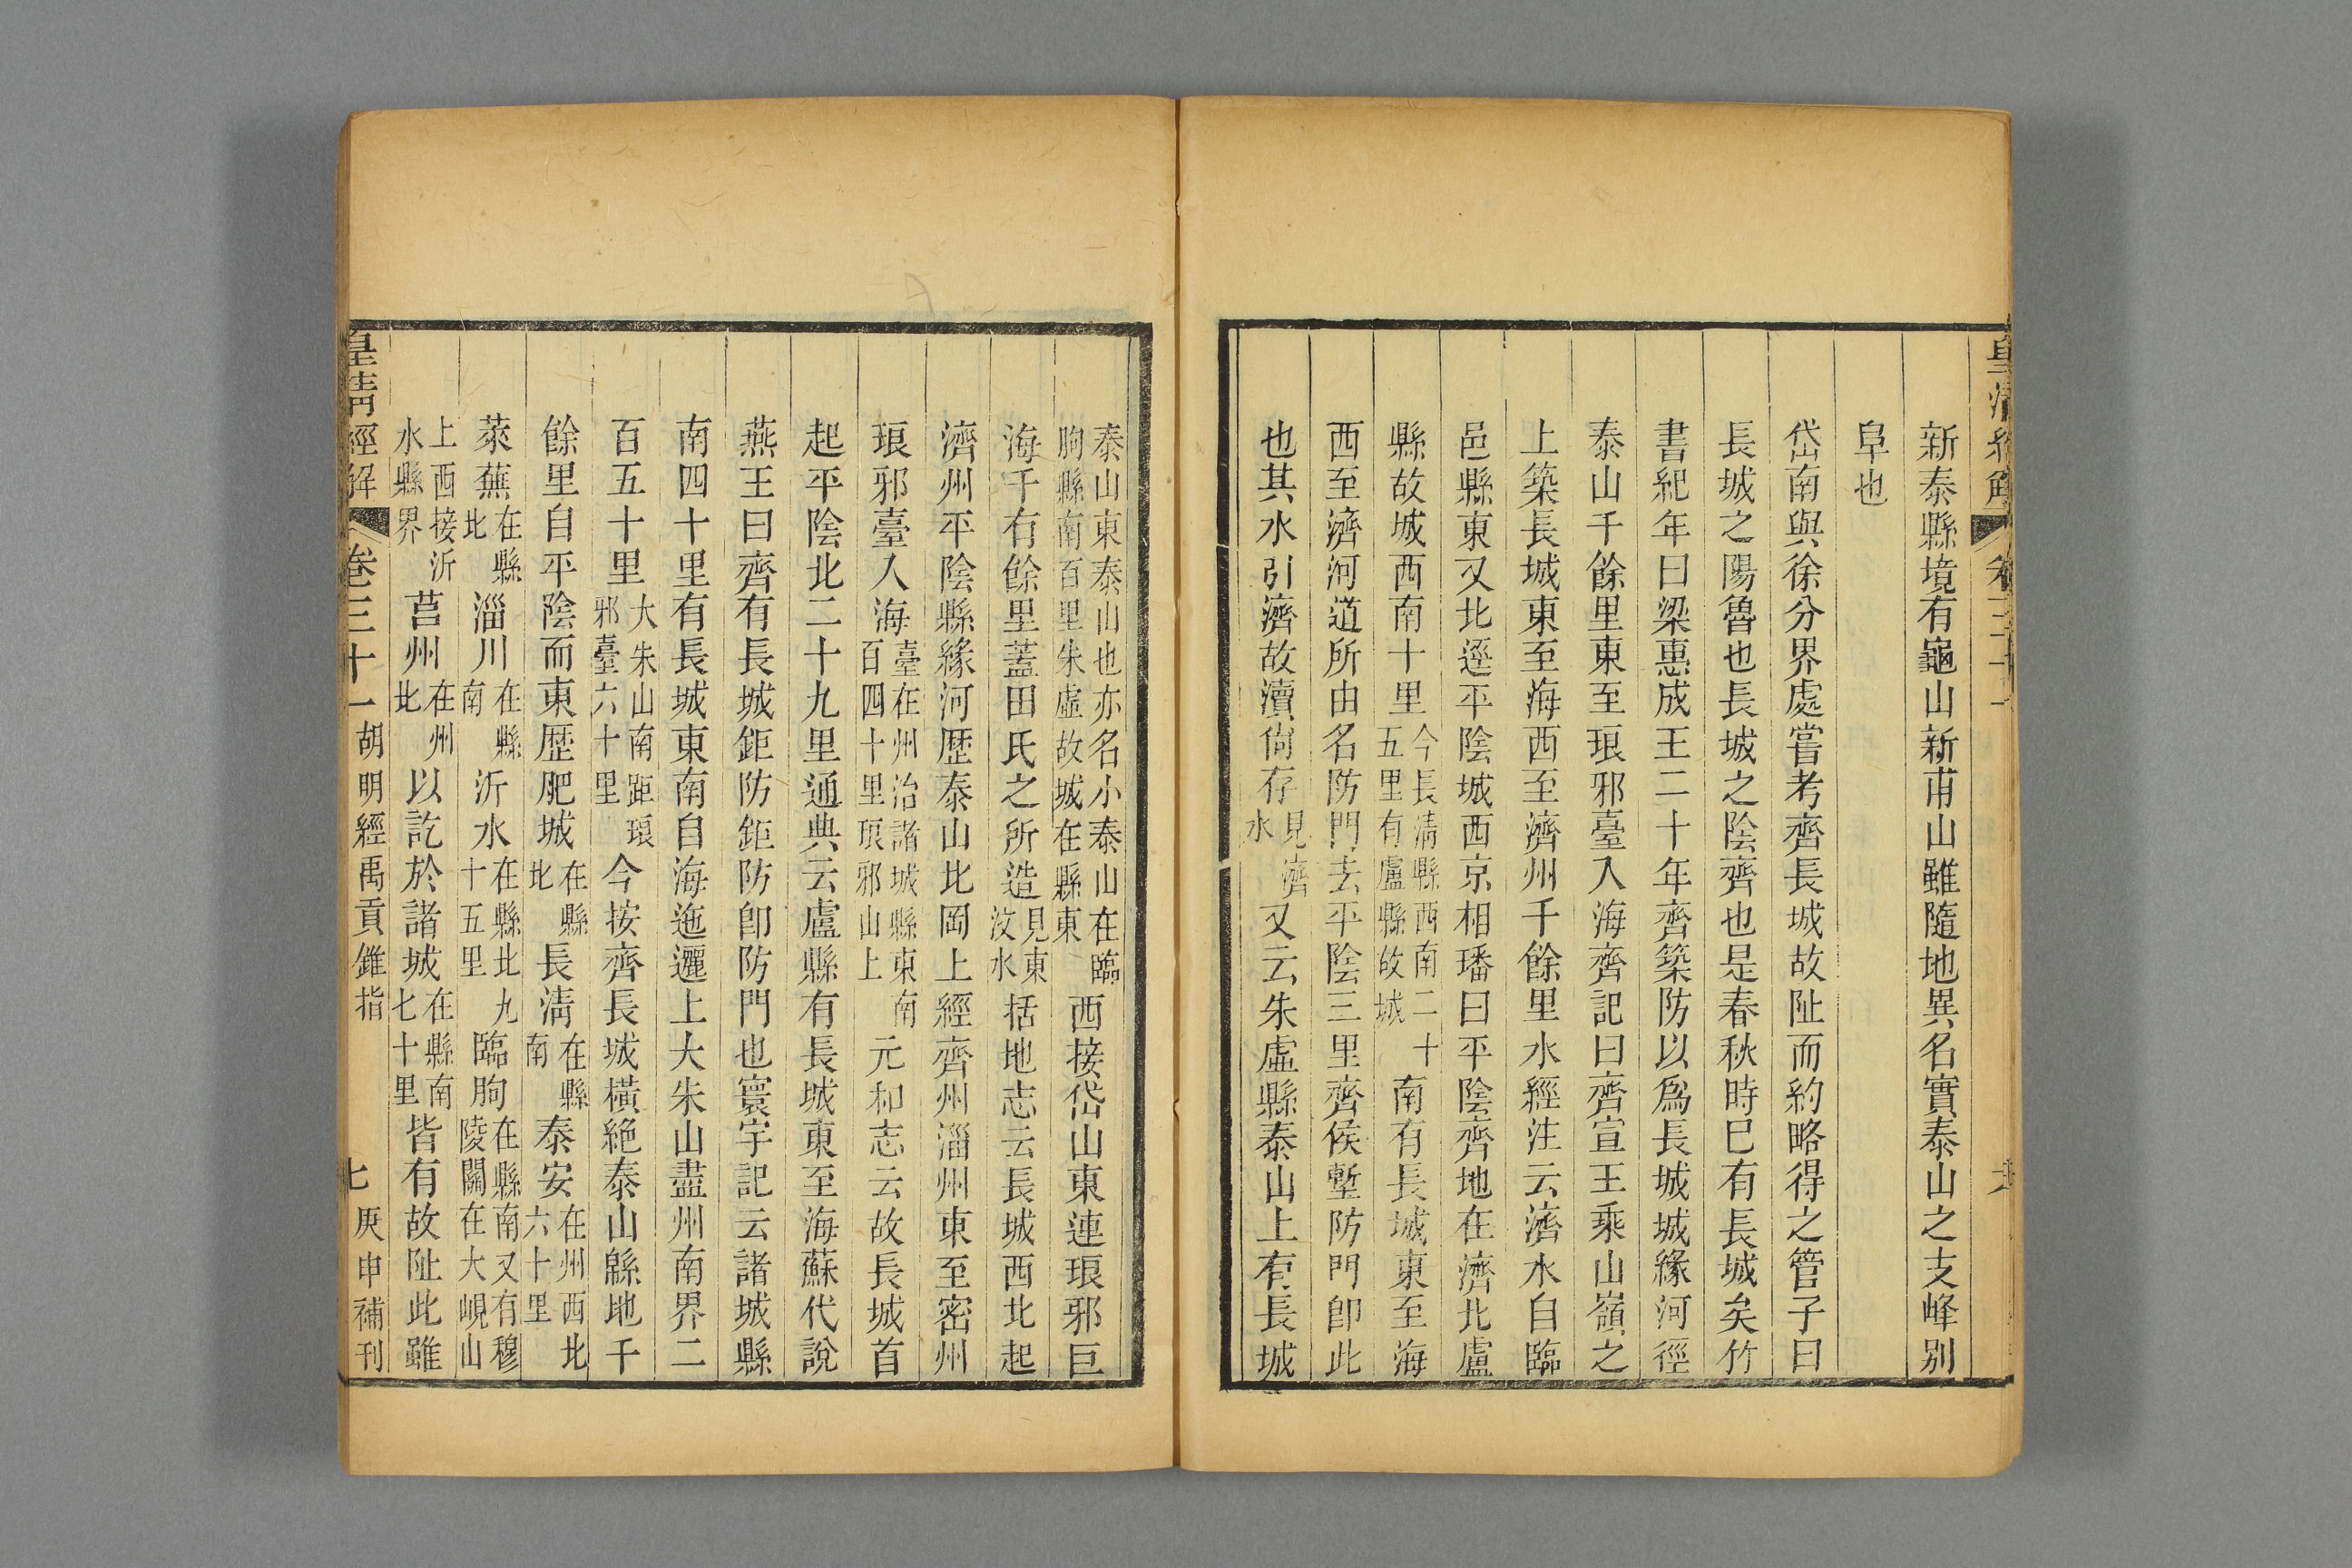 皇清經解 卷三十一
新泰縣境有龜山新甫山雖隨地異名實泰山之支峰别
阜也
岱南與徐分界處嘗考齊長城故阯而約略得之管子曰
長城之陽魯也長城之陰齊也是春秋時巳有長城矣竹
書紀年曰梁惠成王二十年齊築防以爲長城城緣河徑
泰山千餘里東至琅邪臺入海齊記曰齊宣王乘山嶺之
上築長城東至海西至濟州千餘里水經注云濟水自臨
邑縣東又北逕平陰城西京相璠曰平陰齊地在濟北盧
縣故城西南十里今長淸縣西南二十五里有盧縣故城南有長城東至海
西至濟河道所由名防門去平陰三里齊侯塹防門卽此
也其水引濟故瀆尙存見濟水又云朱虛縣泰山上有長城
泰山東泰山也亦名小泰山在臨朐縣南百里朱虛故城在縣東西接岱山東連琅邪巨
海千有餘里蓋田氏之所造見東汶水括地志云長城西北起
濟州平陰縣緣河歷泰山北岡上經齊州淄州東至密州
琅邪臺入海臺在州治諸城縣東南百四十里琅邪山上元和志云故長城首
起平陰北二十九里通典云盧縣有長城東至海蘇代說
燕王曰齊有長城鉅防鉅防卽防門也寰宇記云諸城縣
南四十里有長城東南自海迤邐上大朱山盡州南界二
百五十里大朱山南距琅邪臺六十里今按齊長城橫絶泰山緜地千
餘里自平陰而東歷肥城在縣北長淸在縣南泰安在州西北六十里
萊蕪在縣北淄川在縣南沂水在縣北九十五里臨朐在縣南又有穆陵關在大峴山
上西接沂水縣界莒州在州北以訖於諸城在縣南七十里皆有故阯此雖
皇淸經解 卷三十一 胡明經禹貢錐指 七 庚申補刊